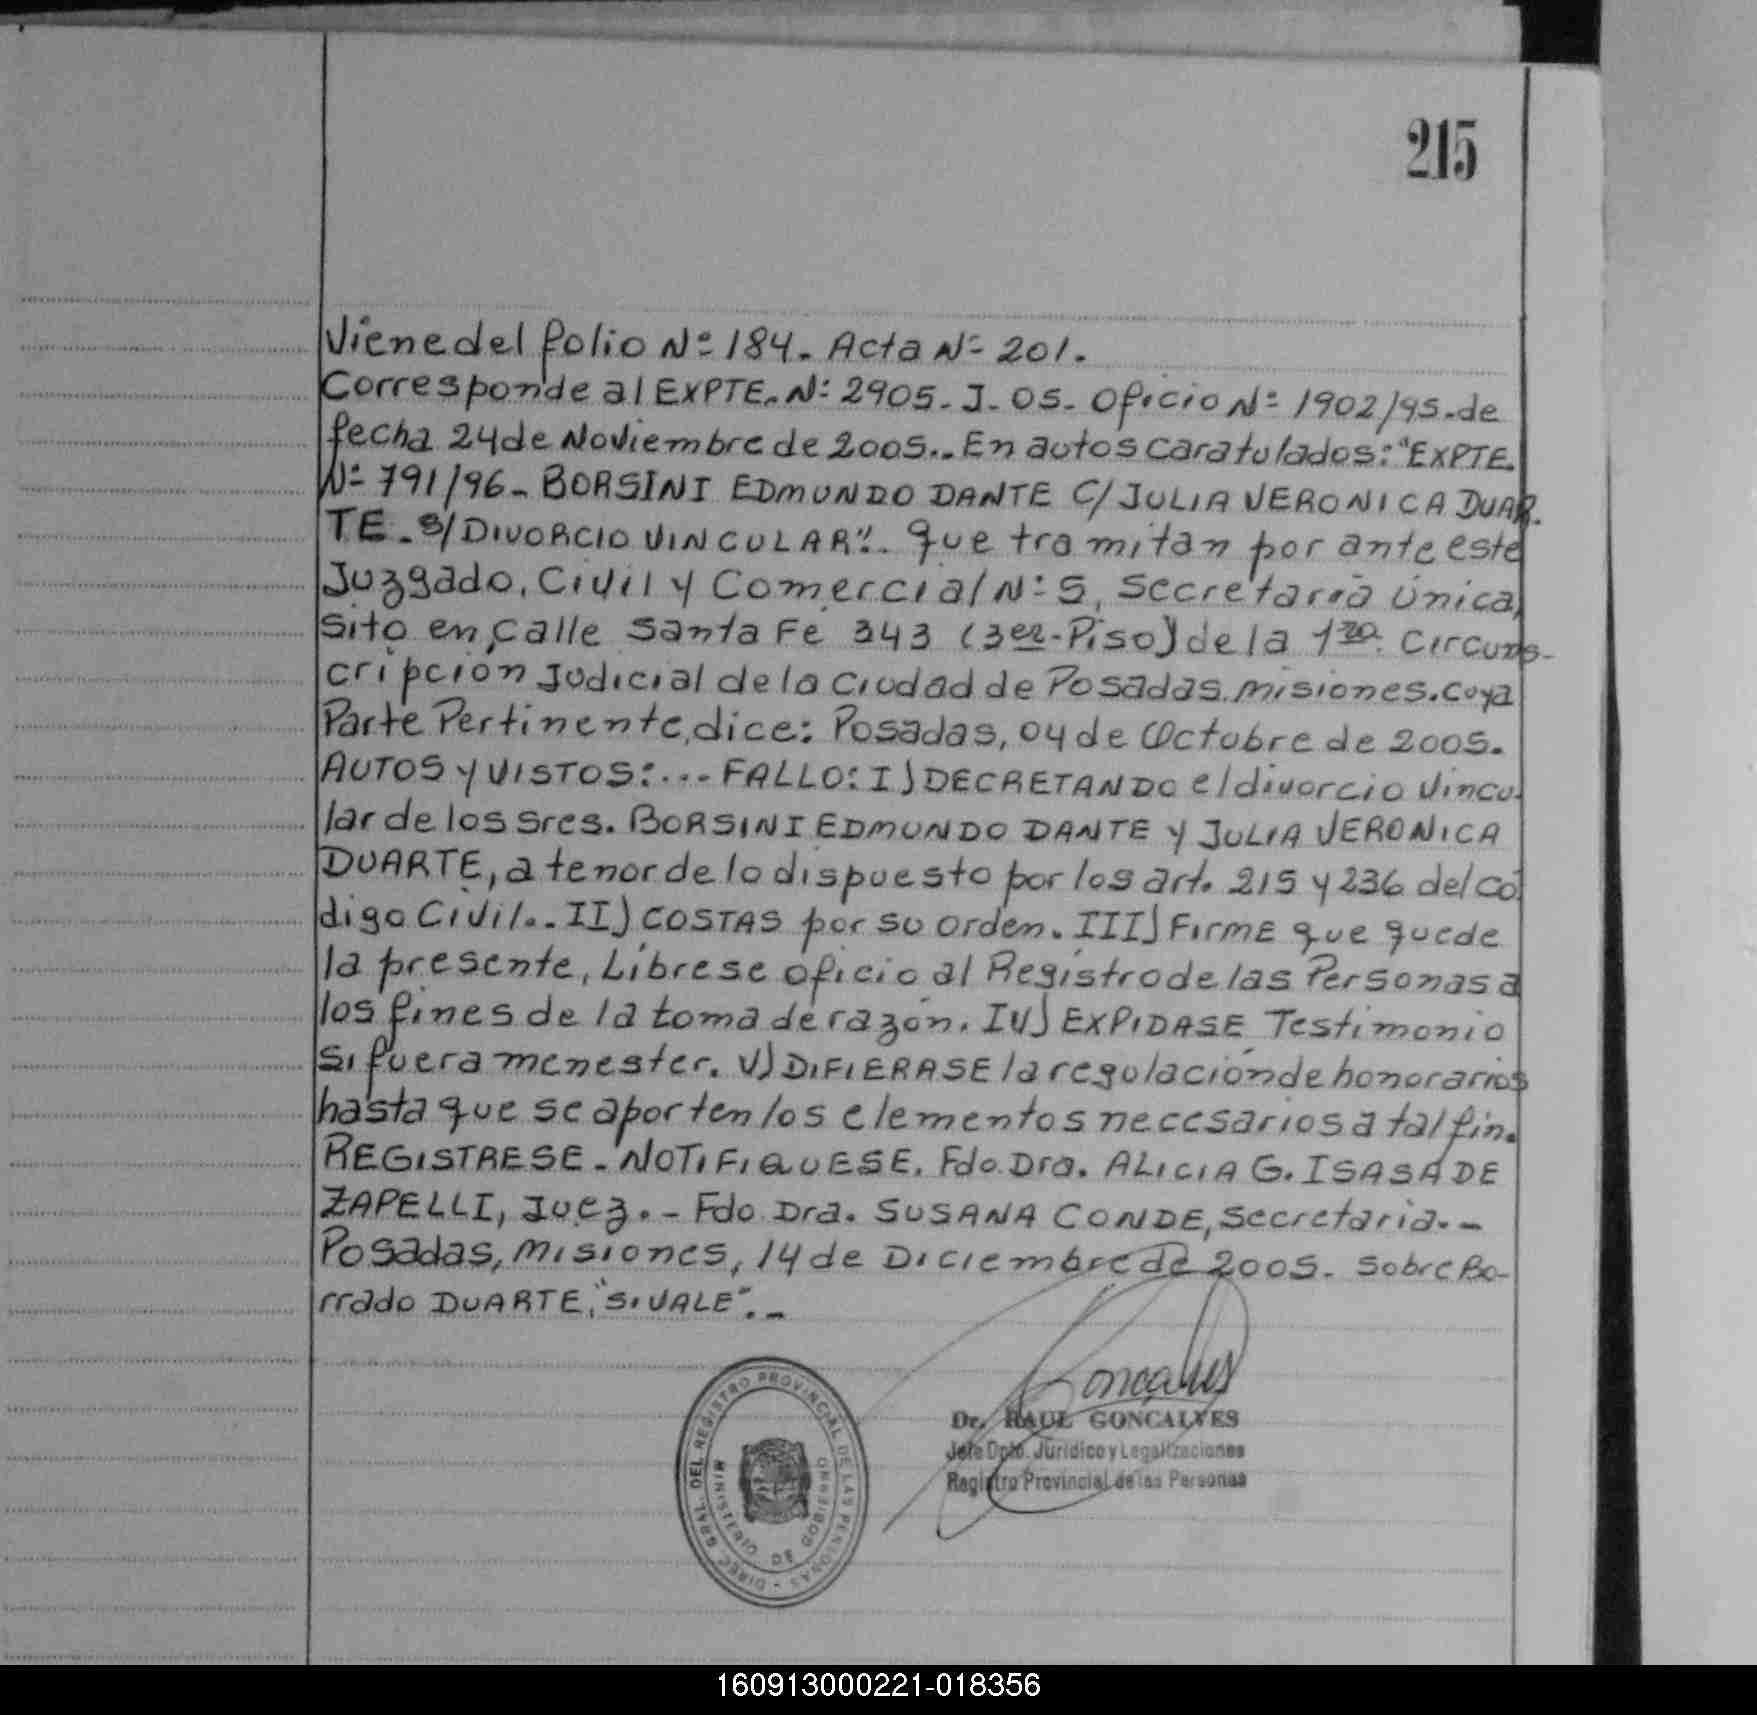 215
Viene del folio Nº 184. Acta Nº 201.
Corresponde al EXPTE. Nº 2905. J. 05. Oficio Nº 1902/95. de
fecha 24 de Noviembre de 2005.. En autos caratulados: "EXPTE.
Nº 791/96 - BORSINI EDMUNDO DANTE C/ JULIA VERONICA DUAR.
TE. S/ DIVORCIO VINCULAR". que tramitan por ante este
Juzgado, Civil y Comercial Nº 5, Secretaría Única,
sito en, calle Santa Fe 343 (3er. Piso) de la 1ra. Circuns-
cripción Judicial de la Ciudad de Posadas. Misiones. cuya
Parte Pertinente, dice: Posadas, 04 de Octubre de 2005.
AUTOS Y VISTOS: ... FALLO: I) DECRETANDO el divorcio vincu-
lar de los Sres. BORSINI EDMUNDO DANTE Y JULIA VERONICA
DUARTE, a tenor de lo dispuesto por los art. 215 y 236 del Có
digo Civil.. II) COSTAS por su orden. III) FIRME que quede
la presente, Líbrese oficio al Registro de las Personas a
los fines de la toma de razón. IV) EXPIDASE Testimonio
si fuera menester. V) DIFIERASE la regulación de honorarios
hasta que se aporten los elementos necesarios a tal fin.
REGISTRESE - NOTIFIQUESE. Fdo. Dra. ALICIA G. ISASA DE
ZAPELLI, Juez. - Fdo. Dra. SUSANA CONDE, Secretaria. -
Posadas, Misiones, 14 de Diciembre de 2005. Sobre Bo-
rrado DUARTE, "SI VALE". -
Goncalves
Dr. RAUL GONCALVES
Jefe Dpto. Jurídico y Legalizaciones
Registro Provincial de las Personas
DIREC. GRAL. DEL REGISTRO PROVINCIAL DE LAS PERSONAS -
MINISTERIO DE GOBIERNO
160913000221-018356